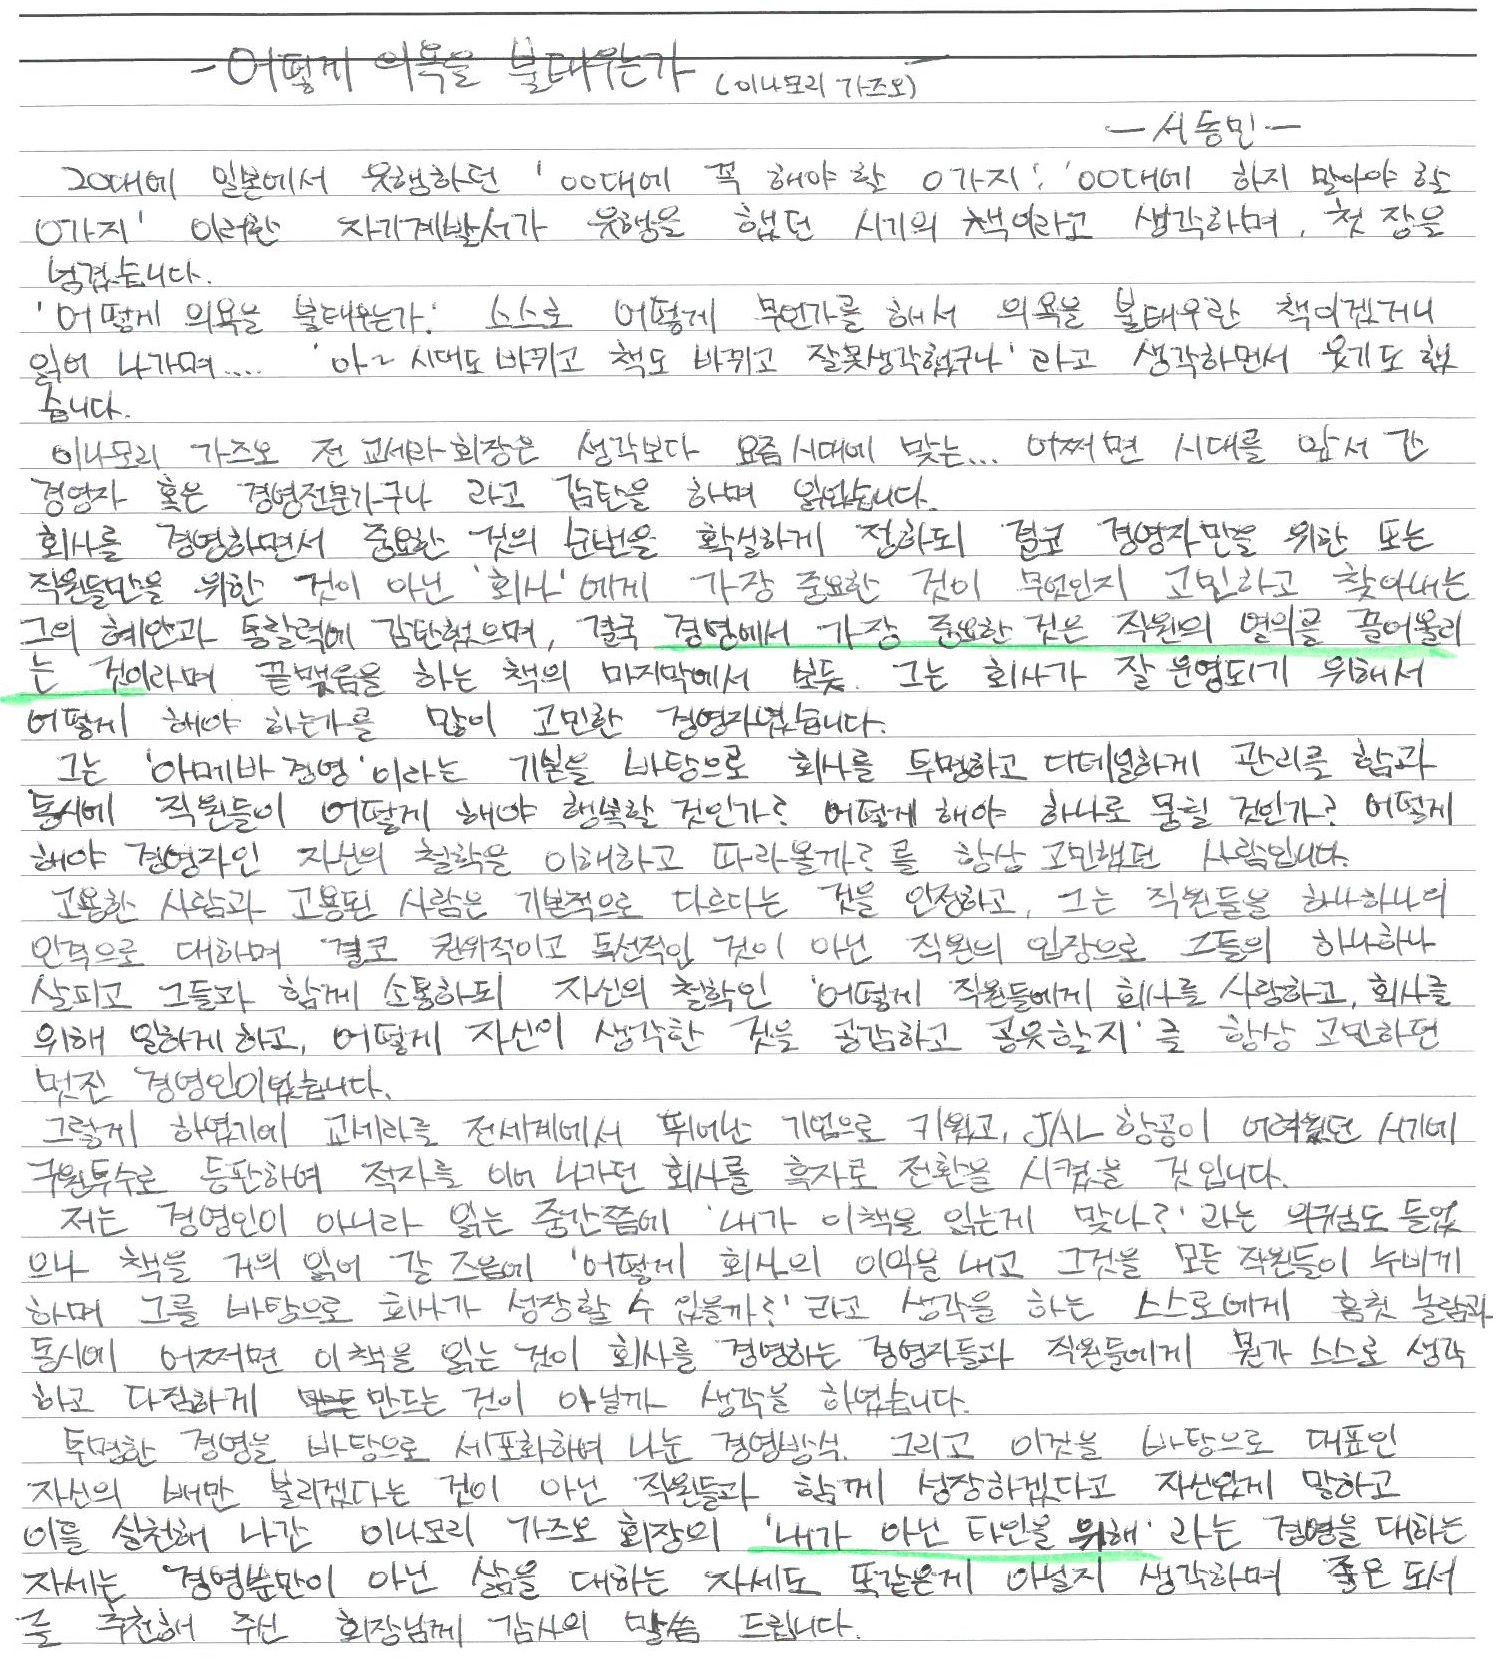 - 어떻게 의욕을 불태우는가 (이나모리 가즈오) -
- 서동민 -
20대에 일본에서 유행하던 'OO대에 꼭 해야 할 O가지', 'OO대에 하지 말아야 할
O가지' 이러한 자기계발서가 유행을 했던 시기의 책이라고 생각하며, 첫 장을
넘겼습니다.
'어떻게 의욕을 불태우는가' 스스로 어떻게 무언가를 해서 의욕을 불태우란 책이겠거니
읽어 나가며.... '아~ 시대도 바뀌고 책도 바뀌고 잘못생각했구나' 라고 생각하면서 웃기도 했
습니다.
이나모리 가즈오 전 교세라 회장은 생각보다 요즘시대에 맞는... 어쩌면 시대를 앞서 간
경영자 혹은 경영전문가구나 라고 감탄을 하며 읽었습니다.
회사를 경영하면서 중요한 것의 순번을 확실하게 정하되 결코 경영자만을 위한 또는
직원들만을 위한 것이 아닌 '회사'에게 가장 중요한 것이 무엇인지 고민하고 찾아내는
그의 혜안과 통찰력에 감탄했으며, 결국 경영에서 가장 중요한 것은 직원의 열의를 끌어올리
는 것이라며 끝맺음을 하는 책의 마지막에서 보듯, 그는 회사가 잘 운영되기 위해서
어떻게 해야 하는가를 많이 고민한 경영자였습니다.
그는 '아메바 경영'이라는 기본을 바탕으로 회사를 투명하고 디테일하게 관리를 함과
동시에 직원들이 어떻게 해야 행복할 것인가? 어떻게 해야 하나로 뭉칠 것인가? 어떻게
해야 경영자인 자신의 철학을 이해하고 따라올까?를 항상 고민했던 사람입니다.
고용한 사람과 고용된 사람은 기본적으로 다르다는 것을 인정하고, 그는 직원들을 하나하나의
인격으로 대하며 결코 권위적이고 독선적인 것이 아닌 직원의 입장으로 그들의 하나하나
살피고 그들과 함께 소통하되 자신의 철학인 '어떻게 직원들에게 회사를 사랑하고, 회사를
위해 일하게 하고, 어떻게 자신이 생각한 것을 공감하고 공유할지'를 항상 고민하던
멋진 경영인이었습니다.
그렇게 하였기에 교세라를 전세계에서 뛰어난 기업으로 키웠고, JAL 항공이 어려웠던 시기에
구원투수로 등판하여 적자를 이어 나가던 회사를 흑자로 전환을 시켰을 것입니다.
저는 경영인이 아니라 읽는 중간쯤에 '내가 이책을 읽는게 맞나?' 라는 의구심도 들었
으나 책을 거의 읽어 갈 즈음에 '어떻게 회사의 이익을 내고 그것을 모든 직원들이 누비게
하며 그를 바탕으로 회사가 성장할 수 있을까?' 라고 생각을 하는 스스로에게 흠칫 놀람과
동시에 어쩌면 이책을 읽는 것이 회사를 경영하는 경영자들과 직원들에게 뭔가 스스로 생각
하고 다짐하게 만드는 것이 아닐까 생각을 하였습니다.
투명한 경영을 바탕으로 세포화하여 나눈 경영방식. 그리고 이것을 바탕으로 대표인
자신의 배만 불리겠다는 것이 아닌 직원들과 함께 성장하겠다고 자신있게 말하고
이를 실천해 나간 이나모리 가즈오 회장의 '내가 아닌 타인을 위해' 라는 경영을 대하는
자세는 경영뿐만이 아닌 삶을 대하는 자세도 똑같은게 아닐지 생각하며 좋은 도서
를 추천해 주신 회장님께 감사의 말씀 드립니다.